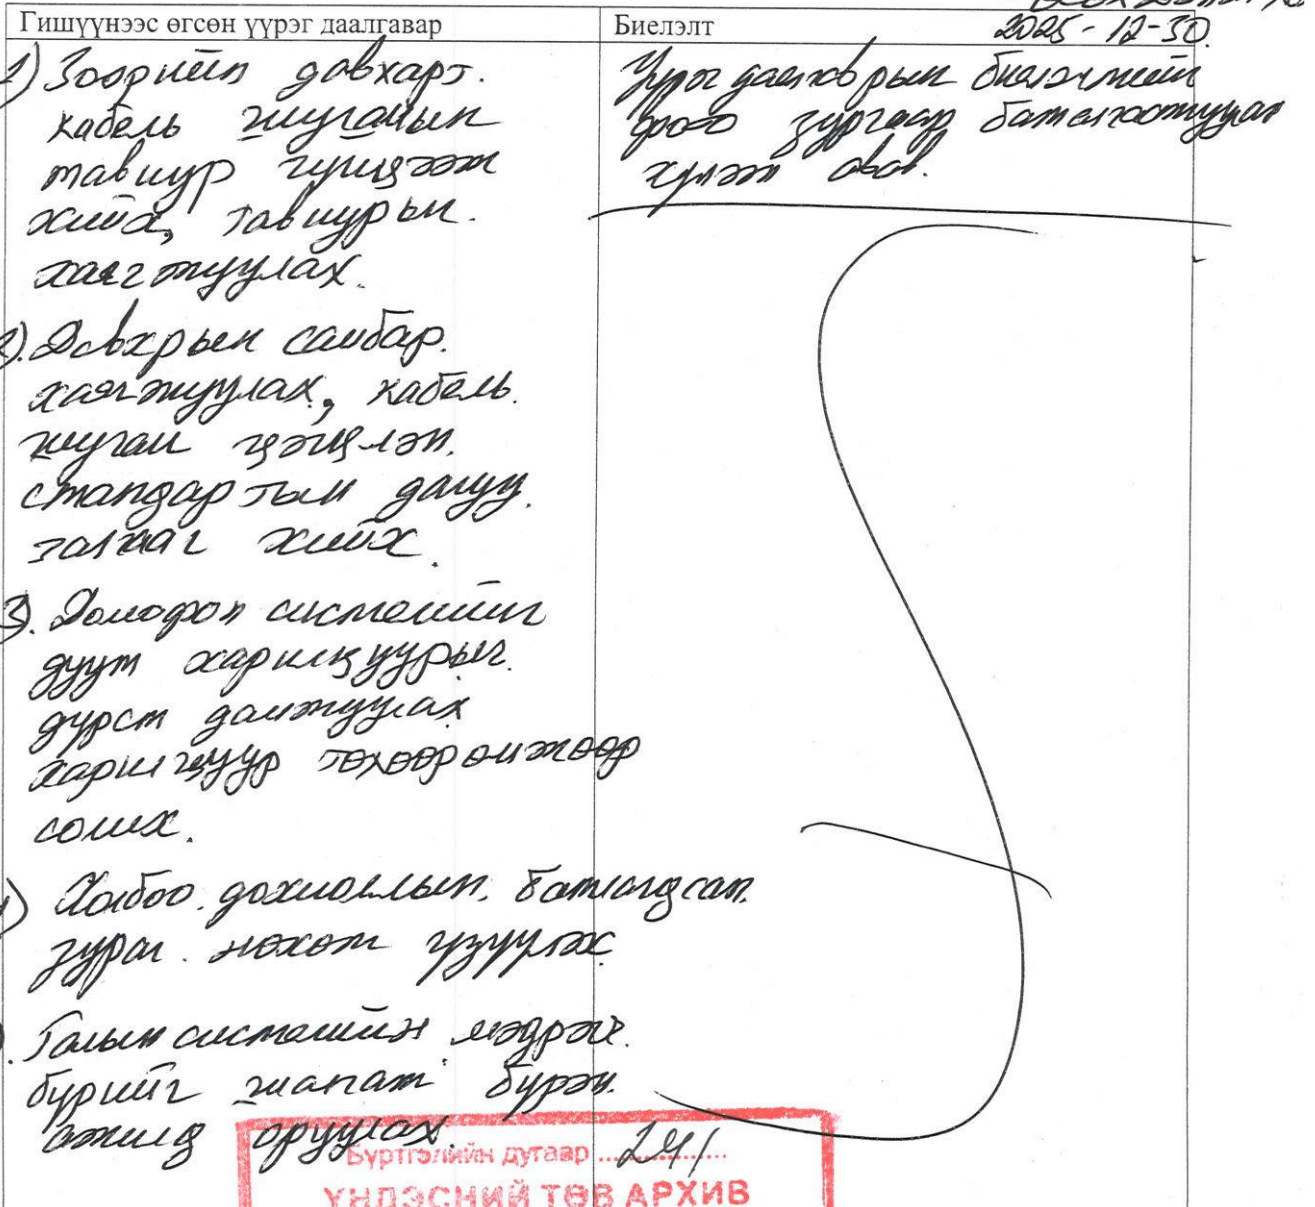 Гишүүнээс өгсөн үүрэг даалгавар
Биелэлт
2025-12-30.
1) Зоорийн давхарт.
кабель шугамын
тавиур гүйцээж
хийх, тавиурын.
хаягжуулах.
2). Давхрын самбар.
хаягжуулах, кабель.
шугам цэгцлэн.
стандартын дагуу.
залгааг хийх.
3. Домофон системийг
дуут харилцуурыг.
дүрст дамжуулах
харилцуур төхөөрөмжөөр
солих.
4) Холбоо дохиоллын. батлагдсан.
зураг. нөхөж үзүүлэх.
. Галын системийн мэдрэгч.
бүрийг шалгаж бүрэн.
ажилд оруулах.
Үүрэг даалгаврын биелэлтийг
фото зургаар баталгаажуулан
хүлээж авав.
Бүртгэлийн дугаар 241
ҮНДЭСНИЙ ТӨВ АРХИВ